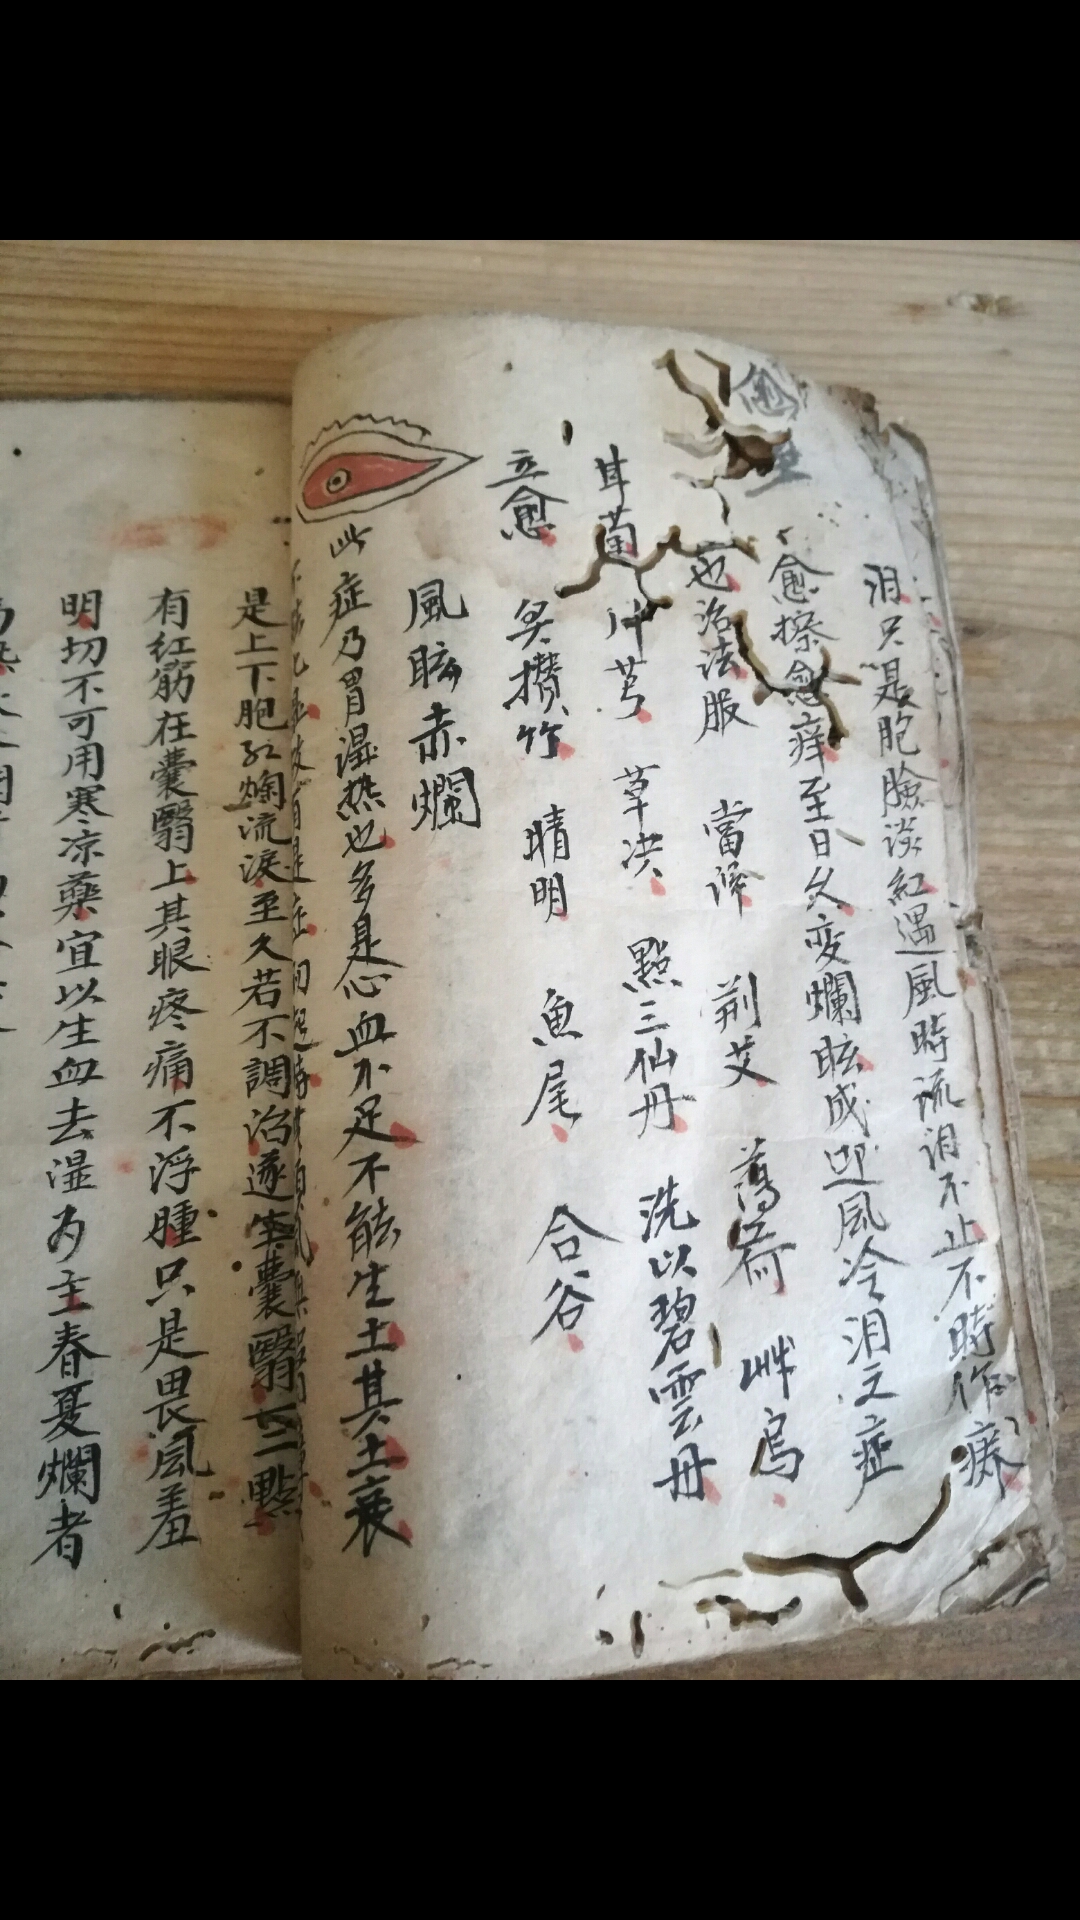 泪只是胞臉淡紅遇風時流泪不止不時作癢
愈擦愈痒至日久变爛眩成迎風冷泪之症
也治法服 當歸 荆芥 薄荷 艸烏
甘菊 川芎 草决 點三仙丹 洗以碧雲丹
立愈 灸攢竹 睛明 魚尾 合谷
風眩赤爛
此症乃胃濕热也多是心血不足不能生土其土衰
是上下胞红爛流淚至久若不調治遂生囊翳一二點
有红筋在囊翳上其眼疼痛不浮腫只是畏風羞
明切不可用寒凉藥宜以生血去湿为主春夏爛者